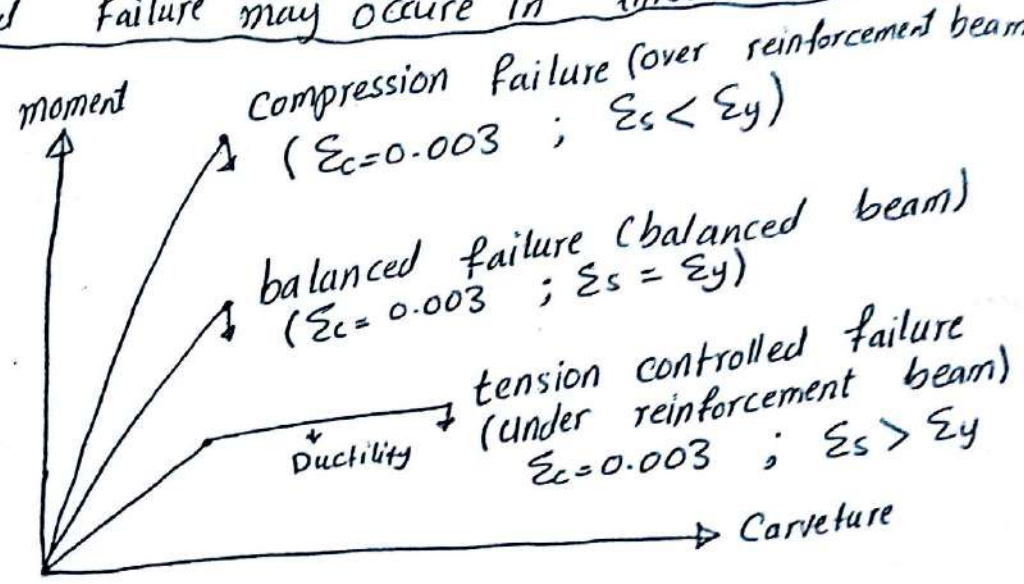 Failure may occure in
moment
Compression failure (over reinforcement beam
( Ɛc=0.003 ; Ɛs < Ɛy)
balanced failure (balanced beam)
(Ɛc= 0.003 ; Ɛs = Ɛy)
tension controlled failure
(under reinforcement beam)
Ɛc=0.003 ; Ɛs > Ɛy
Ductility
Carveture